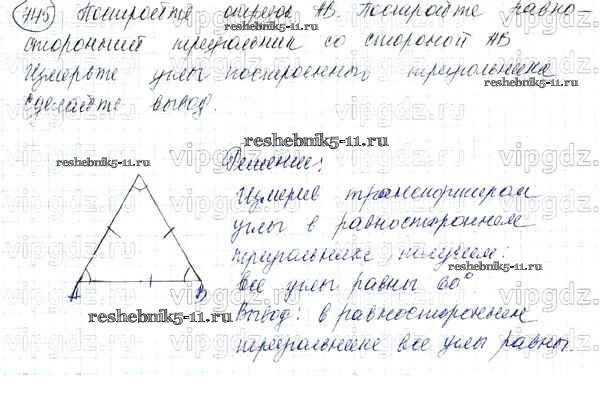 745 Постройте отрезок AB. Постройте равно-
сторонний треугольник со стороной AB
Измерьте углы построенного треугольника
сделайте вывод.
reshebnik5-11.ru
reshebnik5-11.ru
Решение:
Измерив транспортиром
углы в равностороннем
треугольнике, получаем:
все углы равны 60°
A B
reshebnik5-11.ru
Вывод: в равностороннем
треугольнике все углы равны.
vipgdz.ru vipgdz.ru vipgdz.ru vipgdz.